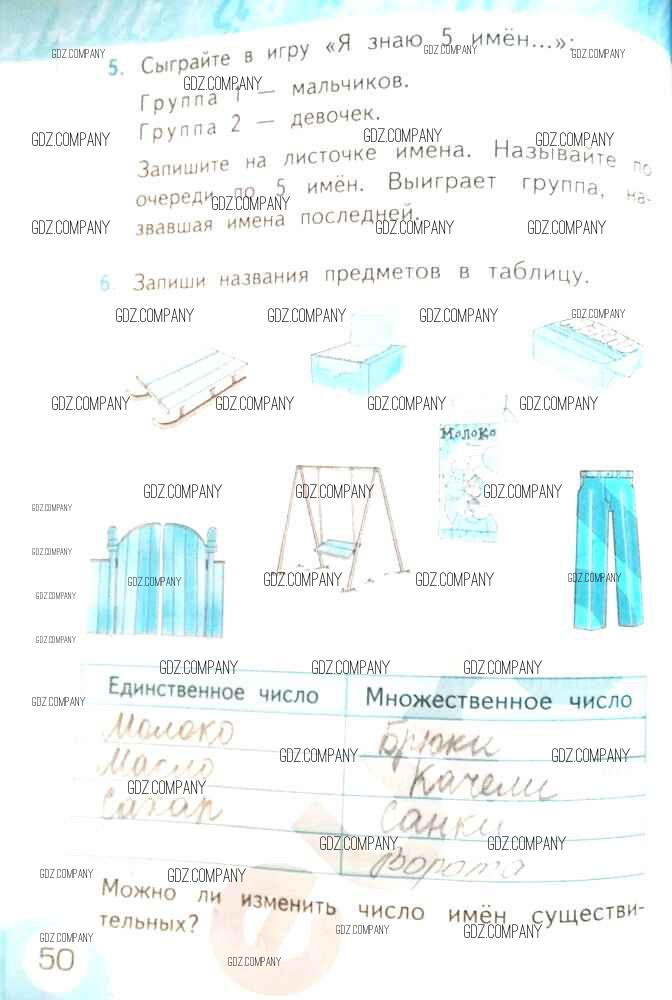 5. Сыграйте в игру «Я знаю 5 имён...»:
Группа 1 — мальчиков.
Группа 2 — девочек.
Запишите на листочке имена. Называйте по
очереди по 5 имён. Выиграет группа, на-
звавшая имена последней.
6. Запиши названия предметов в таблицу.
Молоко
Единственное число Множественное число
Молоко Брюки
Масло Качели
Сахар Санки
Ворота
Можно ли изменить число имён существи-
тельных?
50
GDZ.COMPANY